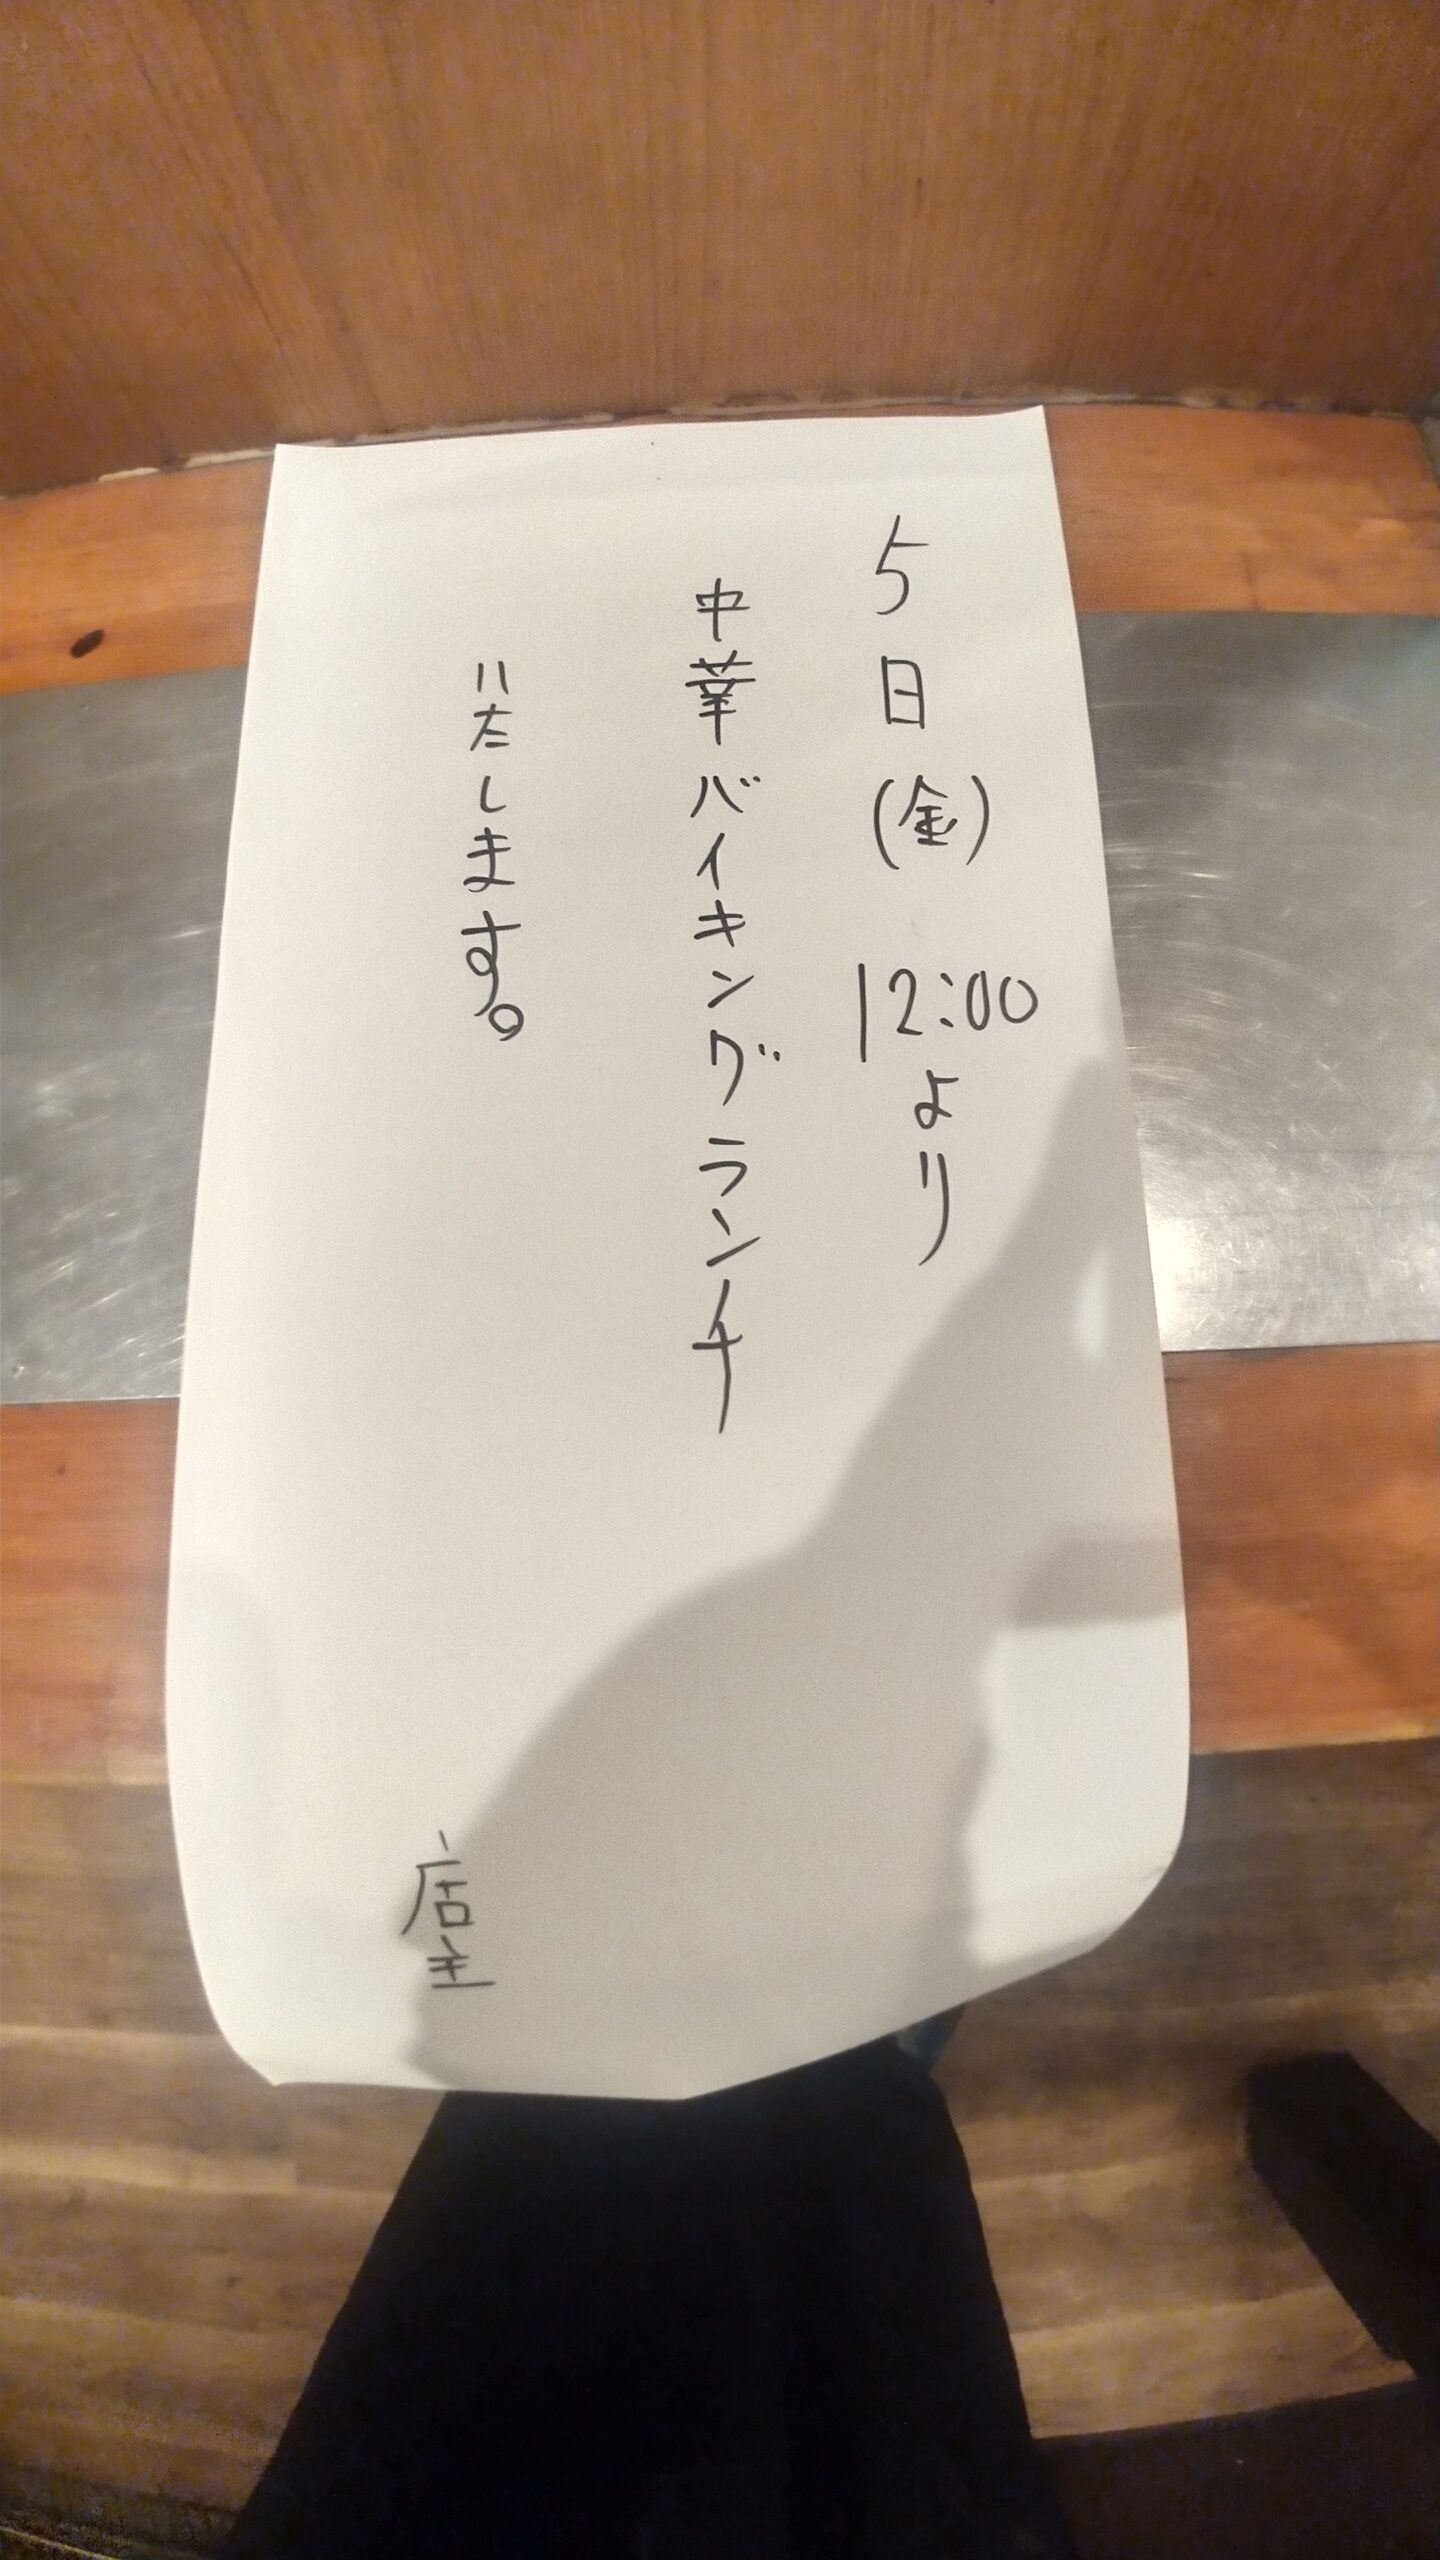 5日(金) 12:00より
中華バイキングランチ
いたします。
店主